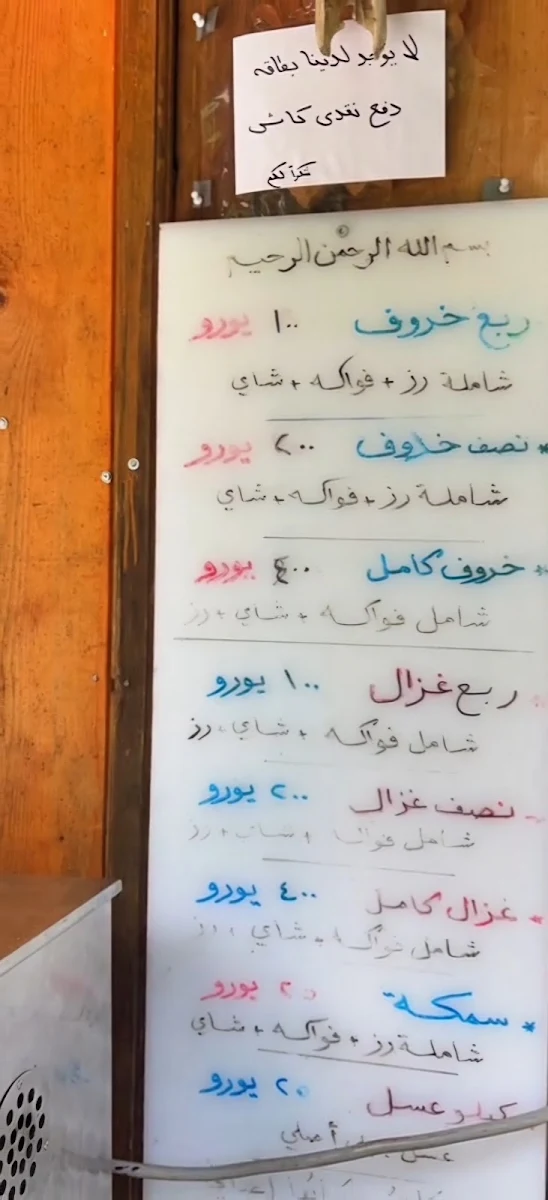 لا يوجد لدينا بطاقه
دفع نقدي كاش
شكرا لكم
بسم الله الرحمن الرحيم
ربع خروف ١٠٠ يورو
شاملة رز + فواكه + شاي
* نصف خروف ٢٠٠ يورو
شاملة رز + فواكه + شاي
* خروف كامل ٤٠٠ يورو
شامل فواكه + شاي + رز
ربع غزال ١٠٠ يورو
شامل فواكه + شاي + رز
نصف غزال ٢٠٠ يورو
شامل فواكه + شاي + رز
* غزال كامل ٤٠٠ يورو
شامل فواكه + شاي + رز
* سمكة ٢٥ يورو
شاملة رز + فواكه + شاي
كيلو عسل ٢٥ يورو
عسل أصلي